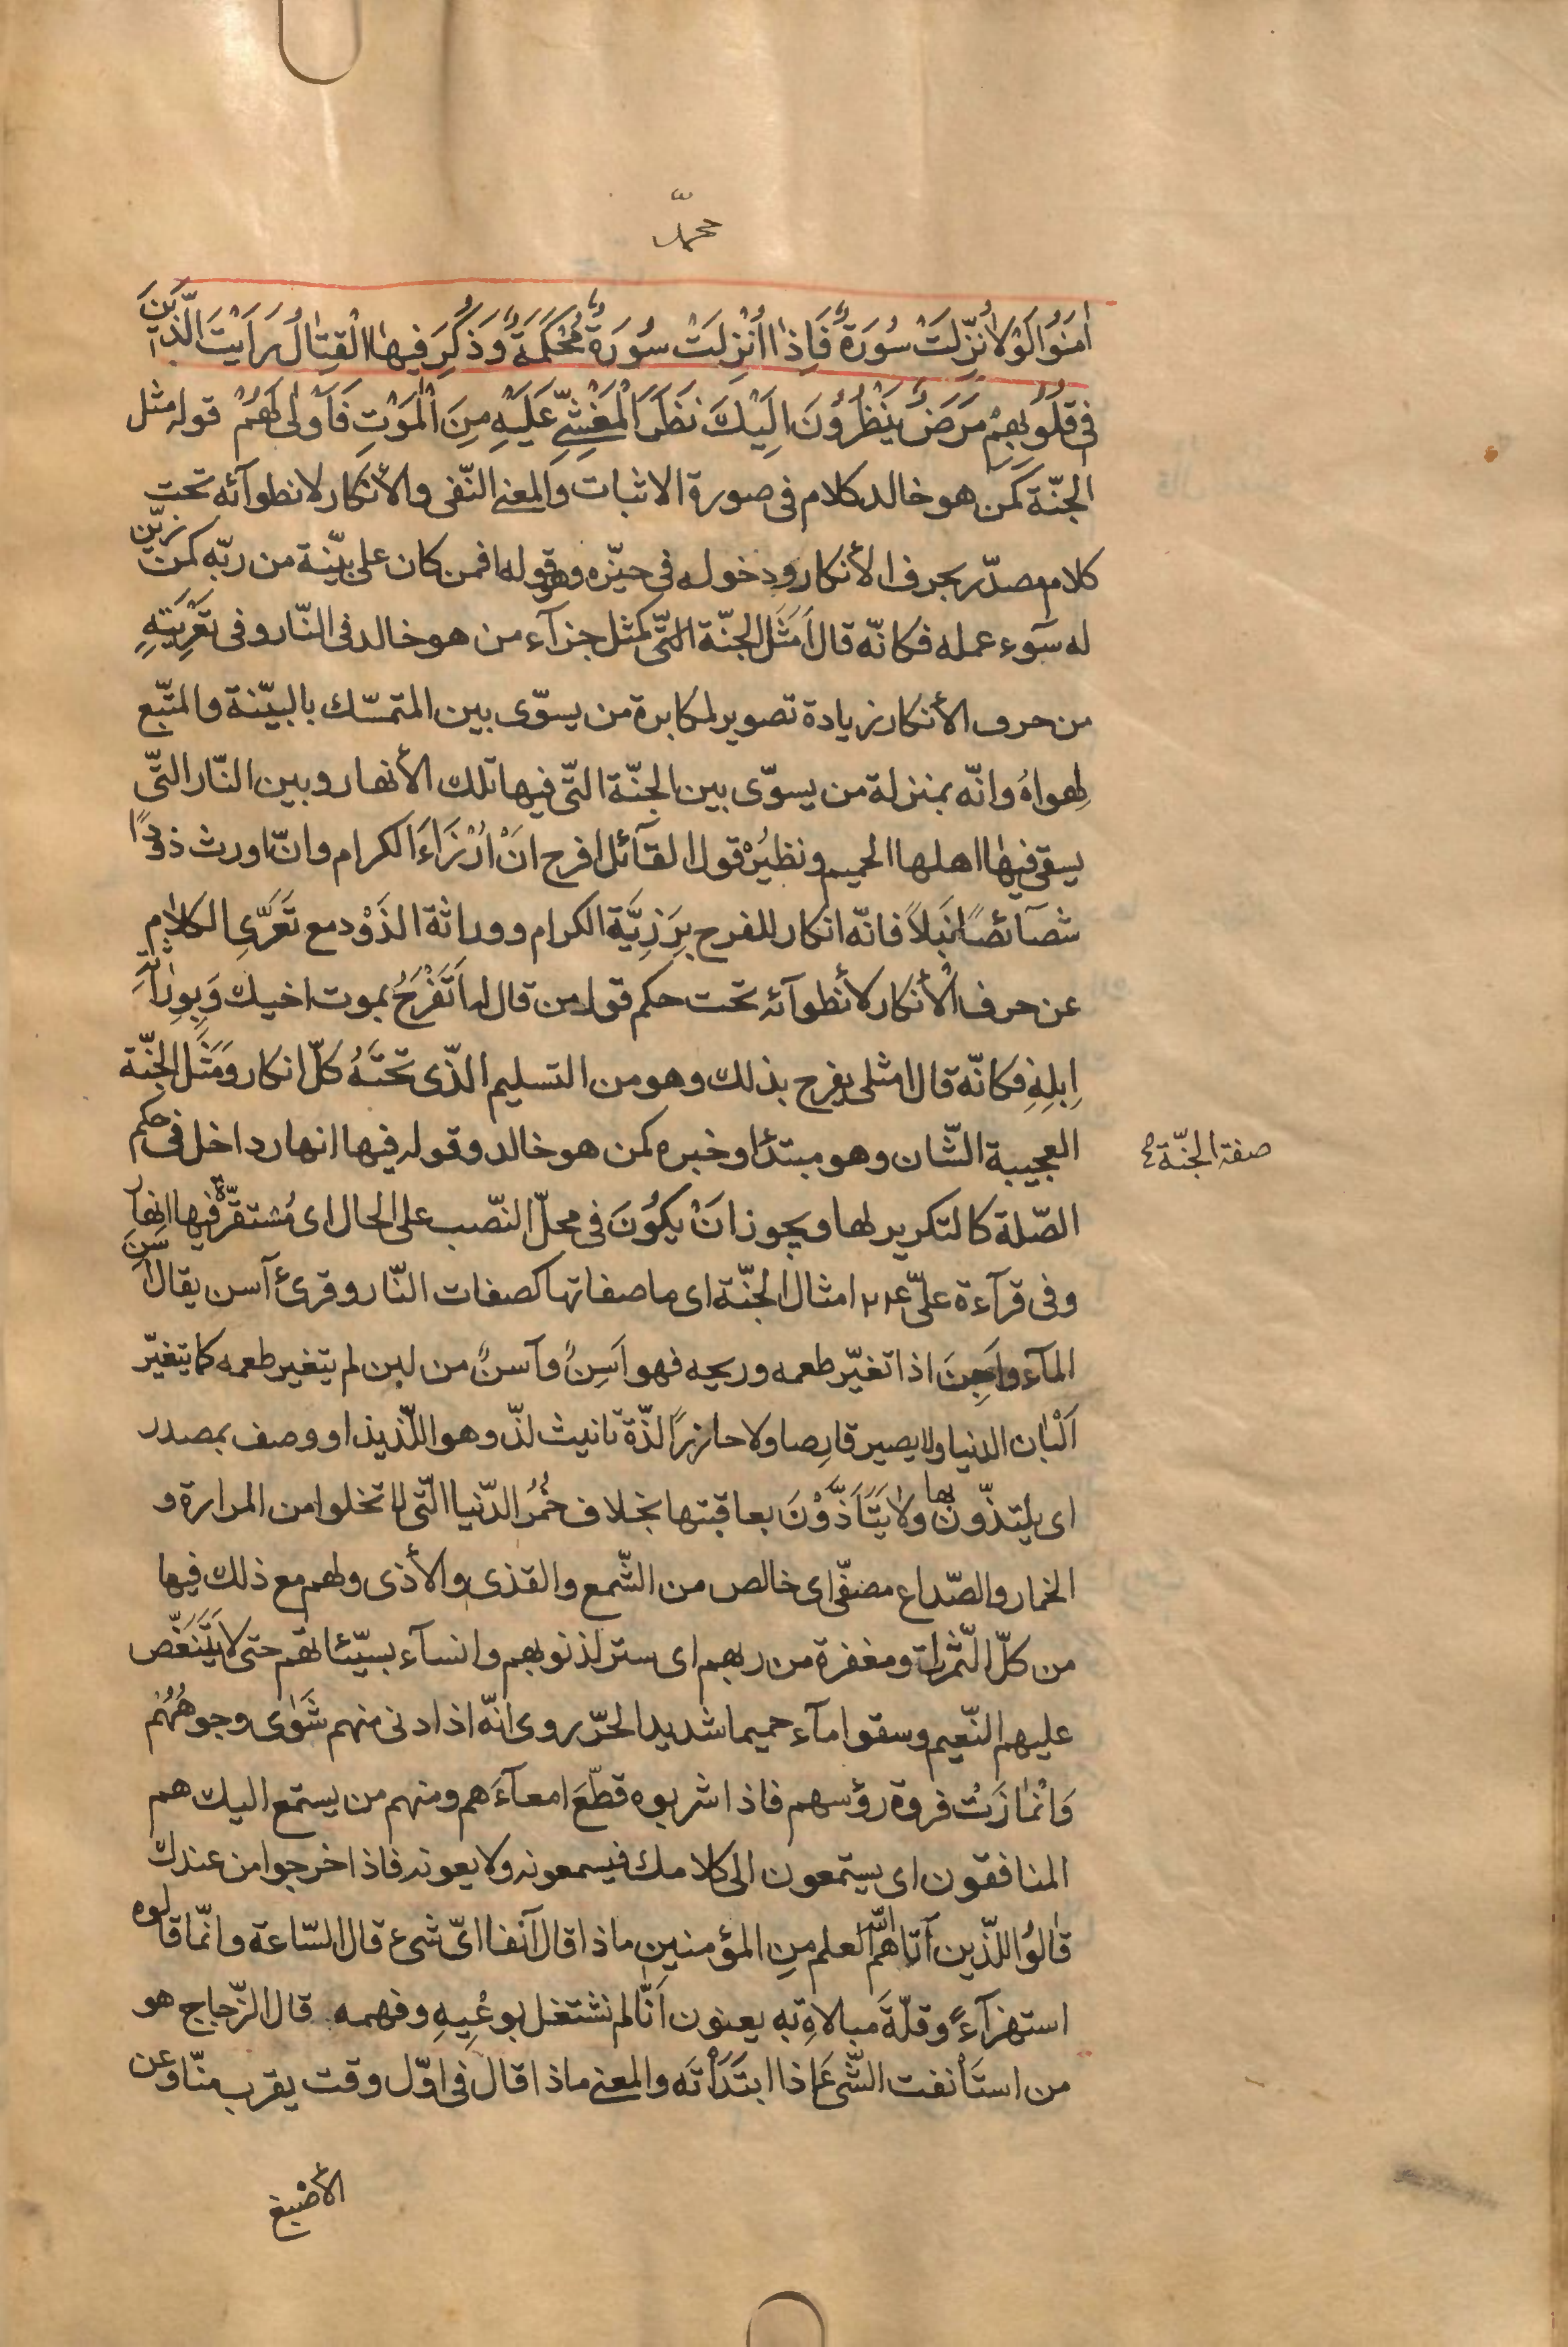 محمّد
اٰمَنُوا لَوْلاٰ نُزِّلَتْ سُورَةٌ فَاِذٰا اُنْزِلَتْ سُورَةٌ مُحْكَمَةٌ وَذُكِرَ فِيهَا الْقِتٰالُ رَاَيْتَ الَّذِينَ
فِى قُلُوبِهِمْ مَرَضٌ يَنْظُرُونَ اِلَيْكَ نَظَرَ الْمَغْشِيِّ عَلَيْهِ مِنَ الْمَوْتِ فَاَوْلٰى لَهُمْ قوله مثل
الجنّة كمن هو خالد كلام فى صورة الاثبات والمعنى النّفى والأنكار لانطوآئه تحت
كلام مصدّر بحرف الأنكار ودخوله فى حيّزه وهو قوله افمن كان على بيّنة من ربّه كمن زيّن
له سوٓء عمله فكانّه قال اَمَثَل الجنّة التّى كمثل جزآء من هو خالد فى النّار وفى تَعْرِيَتِهِ
من حرف الأنكار زيادة تصوير لمكابرة من يسوّى بين المتمسّك بالبيّنة والمتّبع
لهواهُ وانّه بمنزلة من يسوّى بين الجنّة التّى فيها تلك الأنهار وبين النّار التّى
يسقى فيهٰا اهلها الحميم ونظيرُهُ قول القآئل افرح اَنْ اُرْزَاَءَ الكرام وانّ اورث ذودًا
شصآئصًا نبلاً فانّه انكار للفرح بِرَزِيَّة الكرام ووراثة الذَوْد مع تَعَرِّى الكلاٰم
عن حرف الأنكار لأنطوآئه تحت حكم قول من قال له اَتَفْرَحُ بموت اخيك وَبِوِرٰاثَةِ
اِبِلِهِ فكانّه قال امثلى يفرح بذلك وهو من التسليم الذّى تحتَهُ كلّ انكار ومَثَل الجنّة
صفة الجنّة
العجيبة الشّان وهو مبتدٔا وخبره كمن هو خالد وقوله فيها انهار داخل فى حكم
الصّلة كالتكرير لها ويجوز اَنْ يكُونَ فى محلّ النصّب على الحال اى مُستقرّة فيها انهآر
وفى قرآءة علىّ ع امثال الجنّة اى ما صفاتها كصفات النّار وقرئ آسن يقال اَسَنَ
المآء واَجِنَ اذا تغيّر طعمه وريحه فهو اَسِنٌ وآسنٌ من لبن لم يتغير طعمه كما يتغيّر
اَلْبٰان الدنيا ولا يصير قارِصا ولا حازرًا لذّة تانيث لذّ وهو اللّذيذ او وصف بمصدر
اى يلتذّون بها ولاٰ يَتَاَذَّوْنَ بعاقبتها بخلاف خُمُرُ الدّنيا التّى لا تخلوا من المرارة و
الخمار والصّداع مصفّى اى خالص من الشّمع والقذى والأذى ولهم مع ذلك فيها
من كلّ الثّمرات ومغفرة من ربهم اى ستر لذنوبهم وانسآء بسيّئاتهم حتى لا يَتَنَغَّص
عليهم النّعيم وسقوا مآء حميما شديد الحرّ روى انّه اذا دنى منهم شَوٰى وجوهُهُم
وَانْمٰازَتْ فروة رؤسهم فاذا شربوه قطّعَ امعآءَهم ومنهم من يستمع اليك هم
المنافقون اى يستمعون الى كلامك فيسمعونه ولا يعونه فاذا خرجوا من عندك
قٰالوُا للّذين آتاهم اللّه العلم مِن المؤمنين ماذا قال آنفا اىّ شىء قال السّاعة وانّما قالوه
استهزآءً وقلّةَ مبالاةِ به يعنون اَنّا لم نشتغل بوعْيِهِ وفهمه قال الزّجاج هو
من استَأنفت الشّىءَ اذا ابتَدَأتَه والمعنى ماذا قال فى اوّل وقت يقرب منّا وعن
الأصْبغ